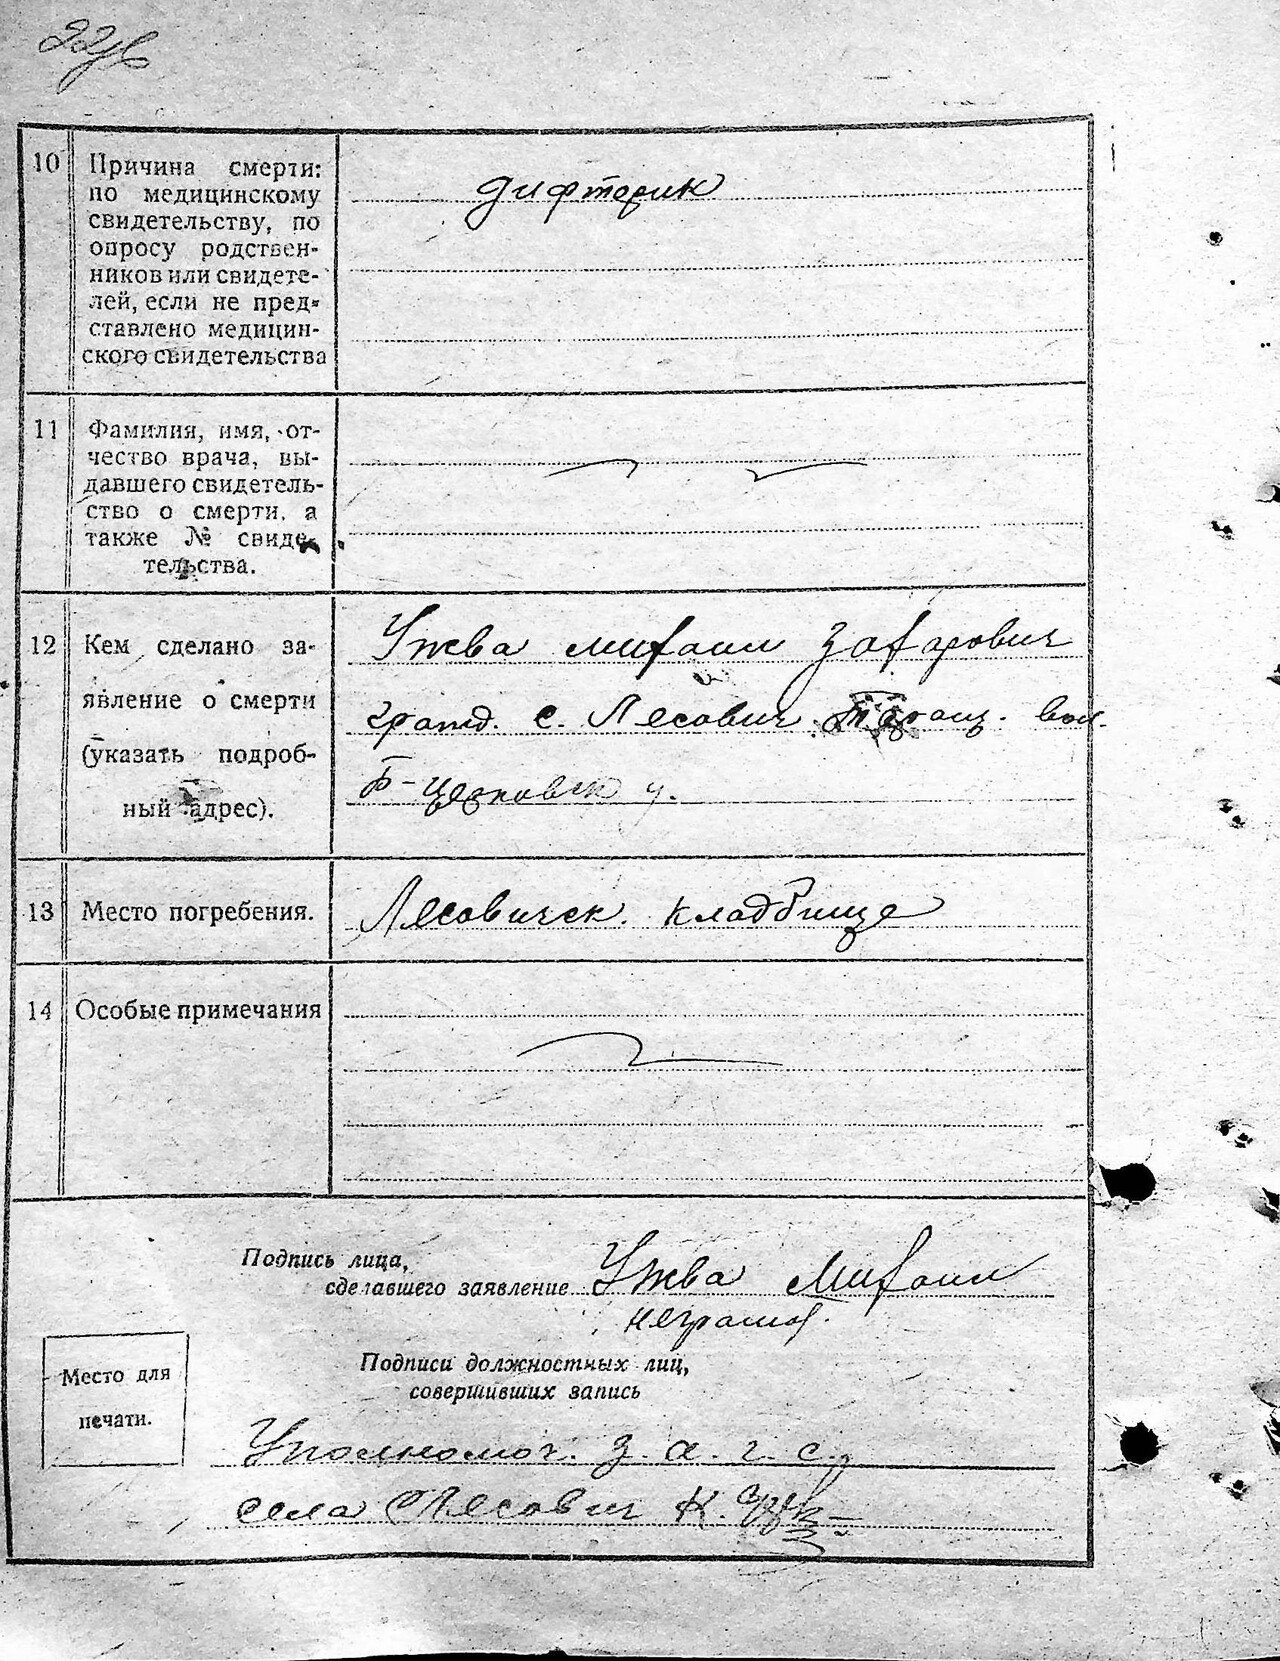 10 Причина смерти:
по медицинскому
свидетельству, по
опросу родствен-
ников или свидете-
лей, если не пред-
ставлено медицин-
ского свидетельства
дифтерик
11 Фамилия, имя, от-
чество врача, вы-
давшего свидетель-
ство о смерти, а
также № свиде-
тельства.
12 Кем сделано за-
явление о смерти
(указать подроб-
ный адрес).
Ужва Михаил Захарович
гражд. с. Лесович. Таращ. вол.
Б-Церковск у.
13 Место погребения.
Лесовичск. кладбище
14 Особые примечания
Подпись лица,
сделавшего заявление Ужва Михаил
неграмот.
Подписи должностных лиц,
совершивших запись
Место для
печати.
Уполномоч. з. а. г. с.
села Лесович К.